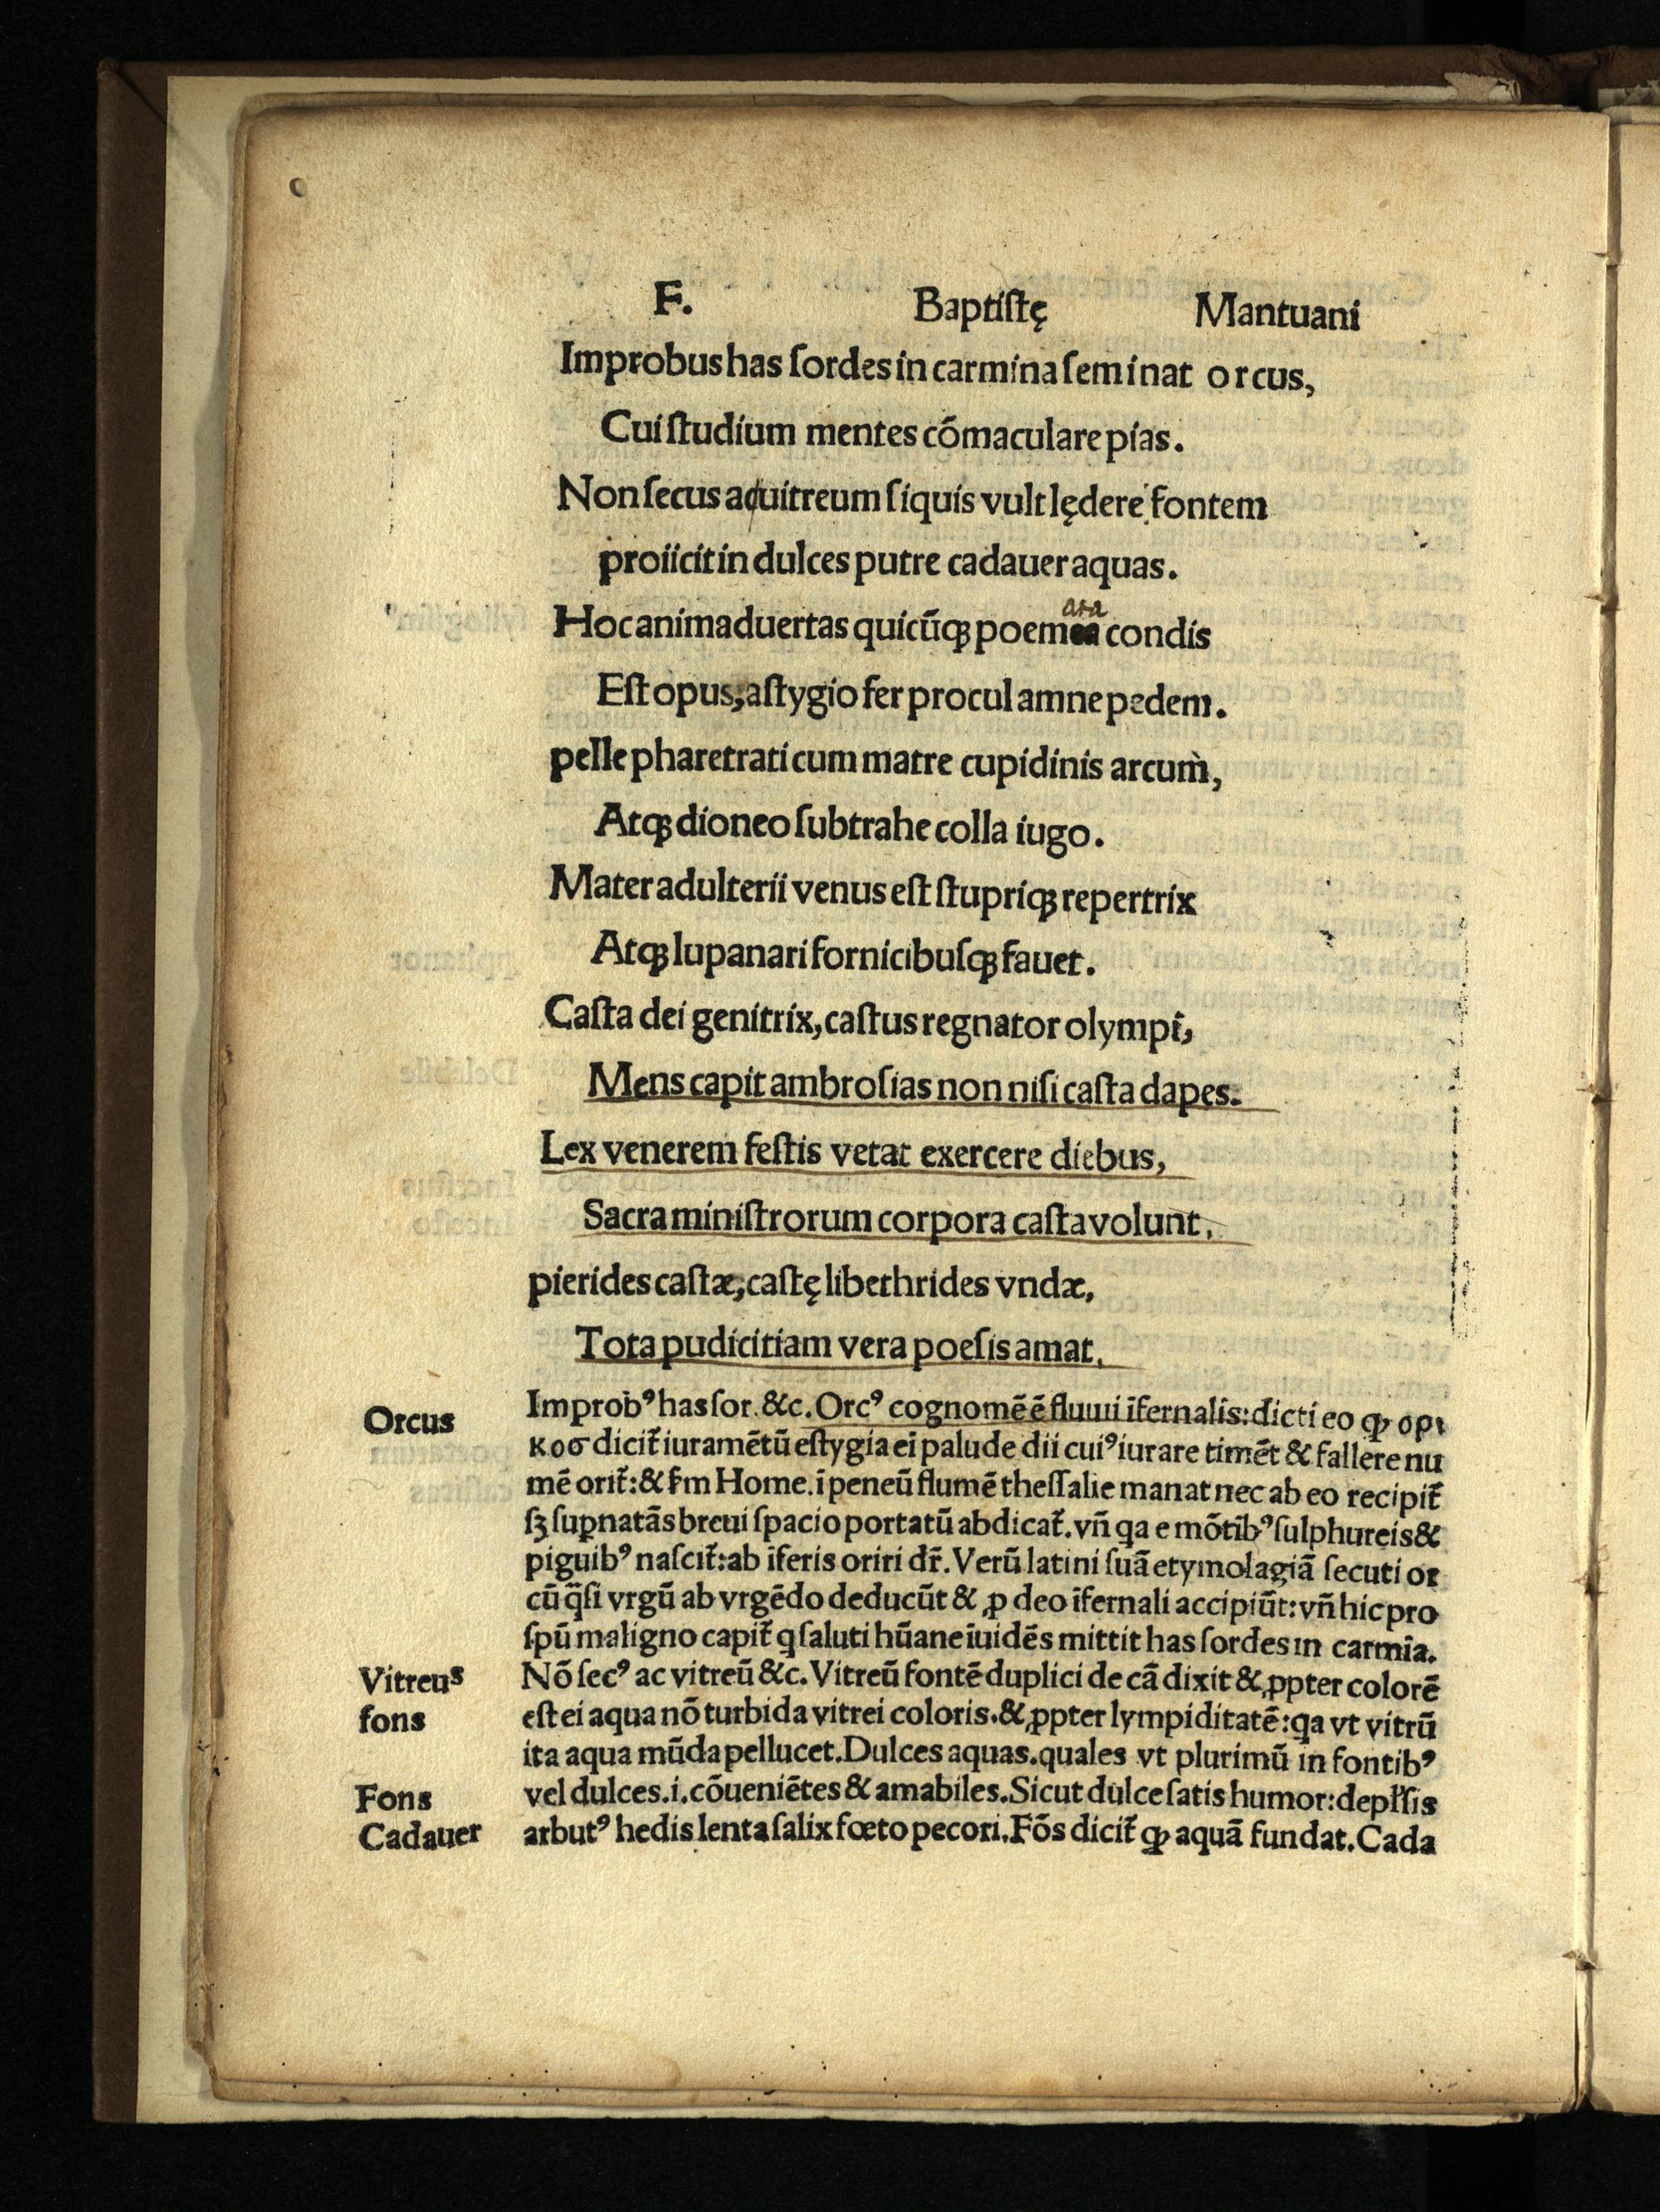 F. Baptiſtę Mantuani
Improbus has ſordes in carmina ſeminat orcus,
Cui ſtudium mentes cõmaculare pias.
Non ſecus ac uitreum ſiquis vult lędere fontem
proiicit in dulces putre cadauer aquas.
ata
Hoc animaduertas quicūqꝫ poemata condis
Eſt opus, a ſtygio fer procul amne pedem.
pelle pharetrati cum matre cupidinis arcum,
Atqꝫ dioneo ſubtrahe colla iugo.
Mater adulterii venus eſt ſtupriqꝫ repertrix
Atqꝫ lupanari fornicibuſqꝫ fauet.
Caſta dei genitrix, caſtus regnator olympi,
Mens capit ambroſias non niſi caſta dapes.
Lex venerem feſtis vetat exercere diebus,
Sacra miniſtrorum corpora caſta volunt.
pierides caſtæ, caſtę libethrides vndæ,
Tota pudicitiam vera poeſis amat.
Orcus
Improbꝰ has ſor. &c. Orcꝰ cognomē ē fluuii īfernalis: dicti eo ꝙ ορι
κοσ dicit̃ iuramētū e ſtygia ei palude dii cuiꝰ iurare timēt & fallere nu
mē orit̃: & ẜm Home. ī peneū flumē theſſalie manat nec ab eo recipit̃
ſꝫ ſuꝑnatãs breui ſpacio portatū abdicat̃. vñ qa e mõtībꝰ ſulphureis &
piguibꝰ naſcit̃: ab īferis oriri dr̃. Verū latini ſuã etymolagiã ſecuti or
cū q̃ſi vrgū ab vrgēdo deducūt & ꝓ deo īfernali accipiūt: vñ hic pro
ſpū maligno capit̃ q ſaluti hūane īuidēs mittit has ſordes in carmīa.
Vitreus
fons
Nõ ſecꝰ ac vitreū &c. Vitreū fontē duplici de cã dixit & ꝓpter colorē
eſt ei aqua nõ turbida vitrei coloris. & ꝓpter lympiditatē: qa vt vitrū
ita aqua mūda pellucet. Dulces aquas. quales vt plurimū in fontibꝰ
Fons
vel dulces. i. cõueniētes & amabiles. Sicut dulce ſatis humor: depl̃ſis
Cadauer
arbutꝰ hedis lenta ſalix fœto pecori. Fõs dicit̃ ꝙ aquã fundat. Cada